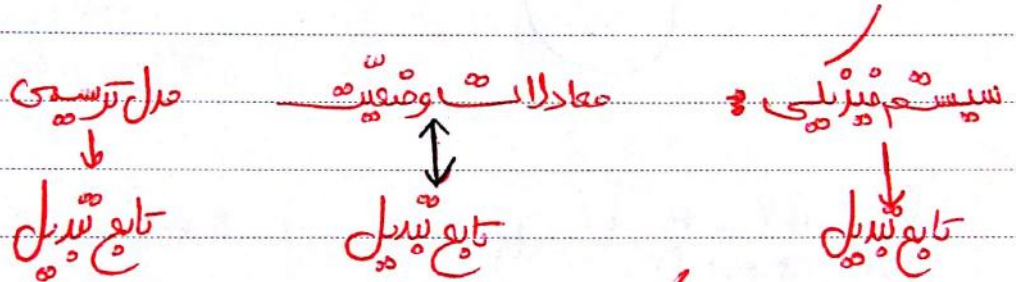 سیستم فیزیکی : معادلات وضعیت مدل ترسیمی
تابع تبدیل تابع تبدیل تابع تبدیل